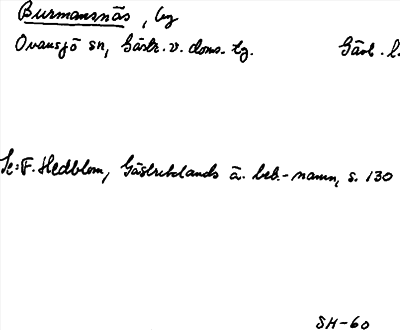 Burmansnäs, by
Ovansjö sn, Gästr. v. doms. tg. Gävl. l.
Se: F. Hedblom, Gästriklands ä. beb.-namn, s. 130
SH-60